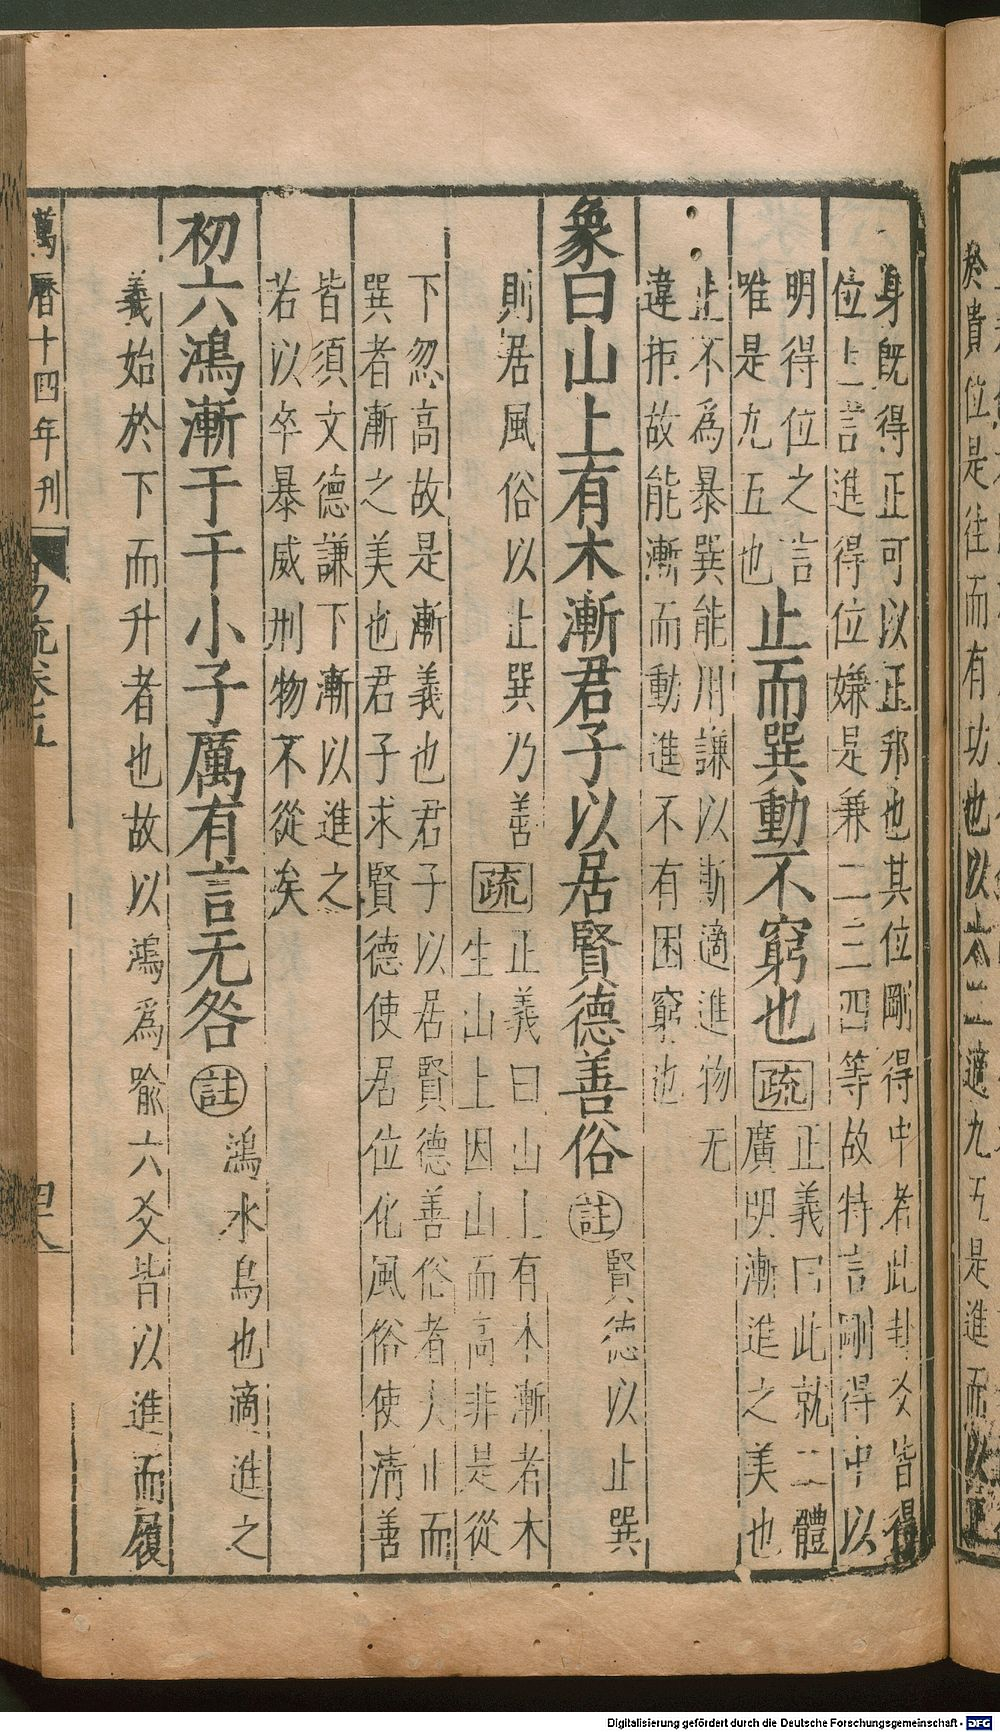 身旣得正可以正邦也其位剛得中者此卦爻皆得
位上言進得位嫌是兼二三四等故特言剛得中以
明得位之言
唯是九五也
止而巽動不窮也
疏
正義曰此就二體
廣明漸進之美也
止不爲暴巽能用謙以漸適進物无
違拒故能漸而動進不有困窮也
象曰山上有木漸君子以居賢德善俗
註
賢德以止巽
則居風俗以止巽乃善
疏
正義曰山上有木漸者木
生山上因山而高非是從
下忽高故是漸義也君子以居賢德善俗者夫止而
巽者漸之美也君子求賢德使居位化風俗使清善
皆須文德謙下漸以進之
若以卒暴威刑物不從矣
初六鴻漸于干小子厲有言无咎
註
鴻水鳥也適進之
義始於下而升者也故以鴻爲喻六爻皆以進而履
萬曆十四年刊
易疏卷五
四八
Digitalisierung gefördert durch die Deutsche Forschungsgemeinschaft - DFG